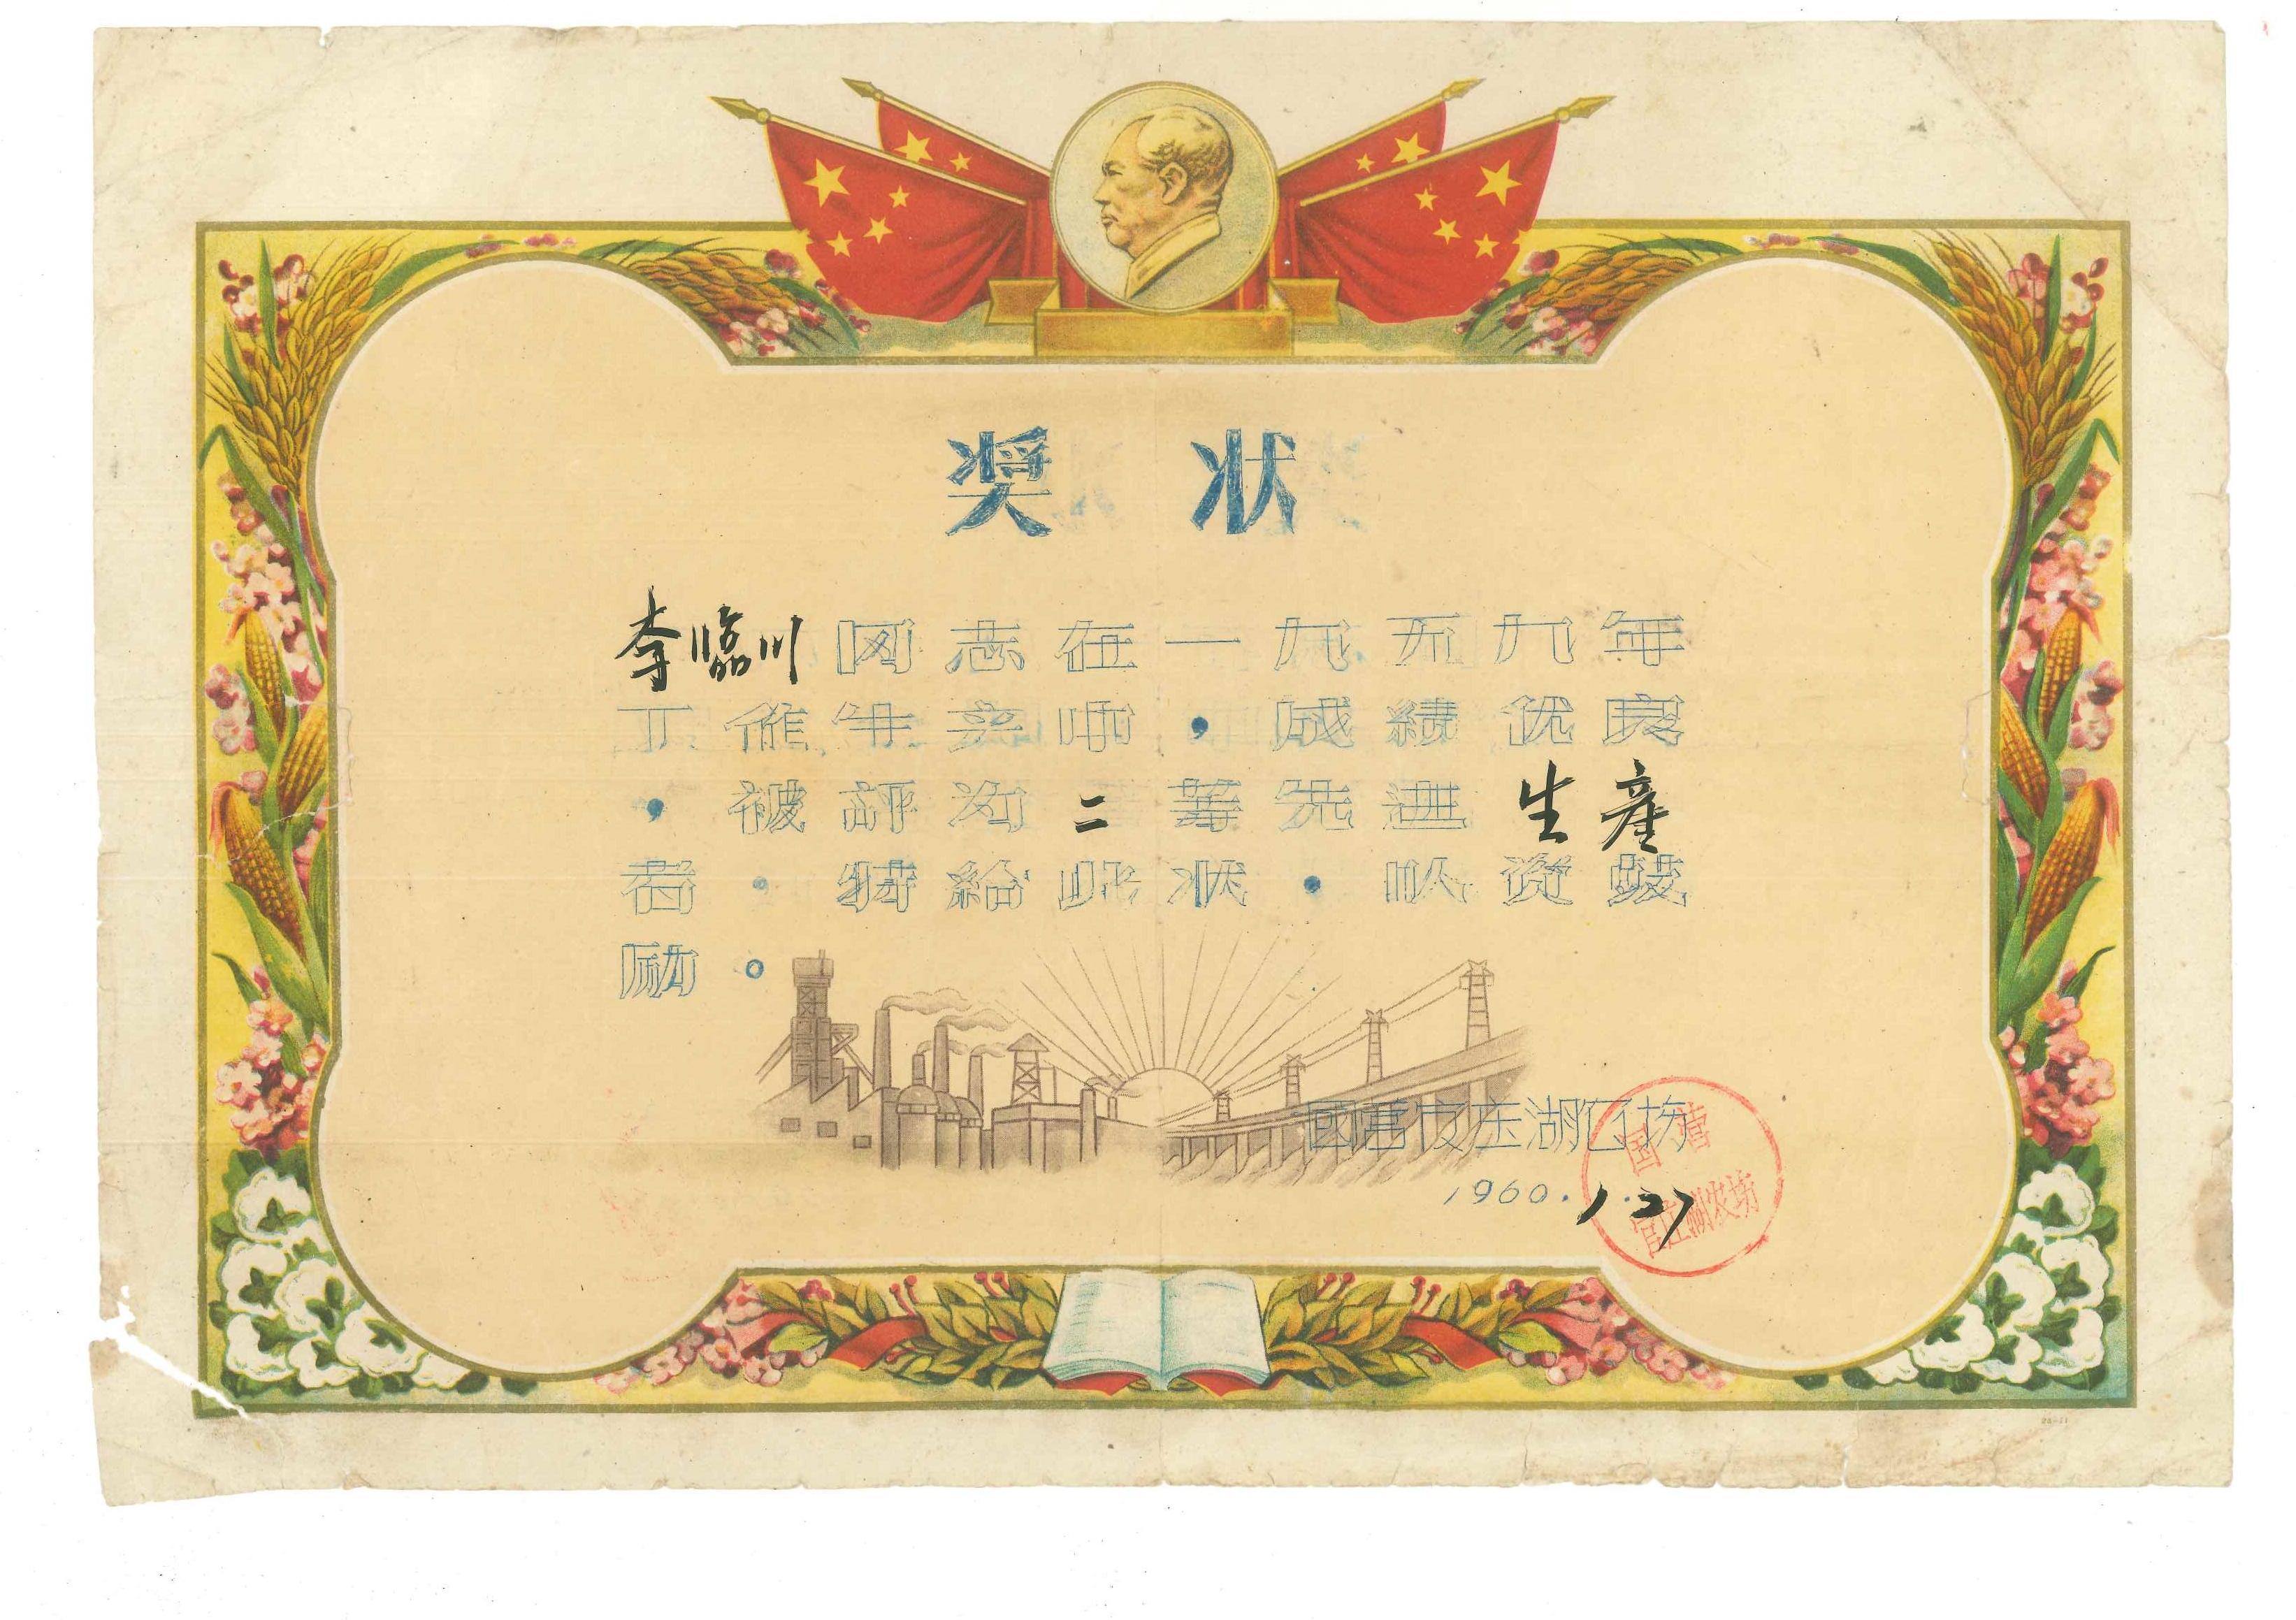 奖状
李临川同志在一九五九年
工作生产中，成績优良
，被評为二等先进生產
者。特給此狀，以资鼓
励。
國营官庄湖农场
1960.1.27
国营
官庄湖农场